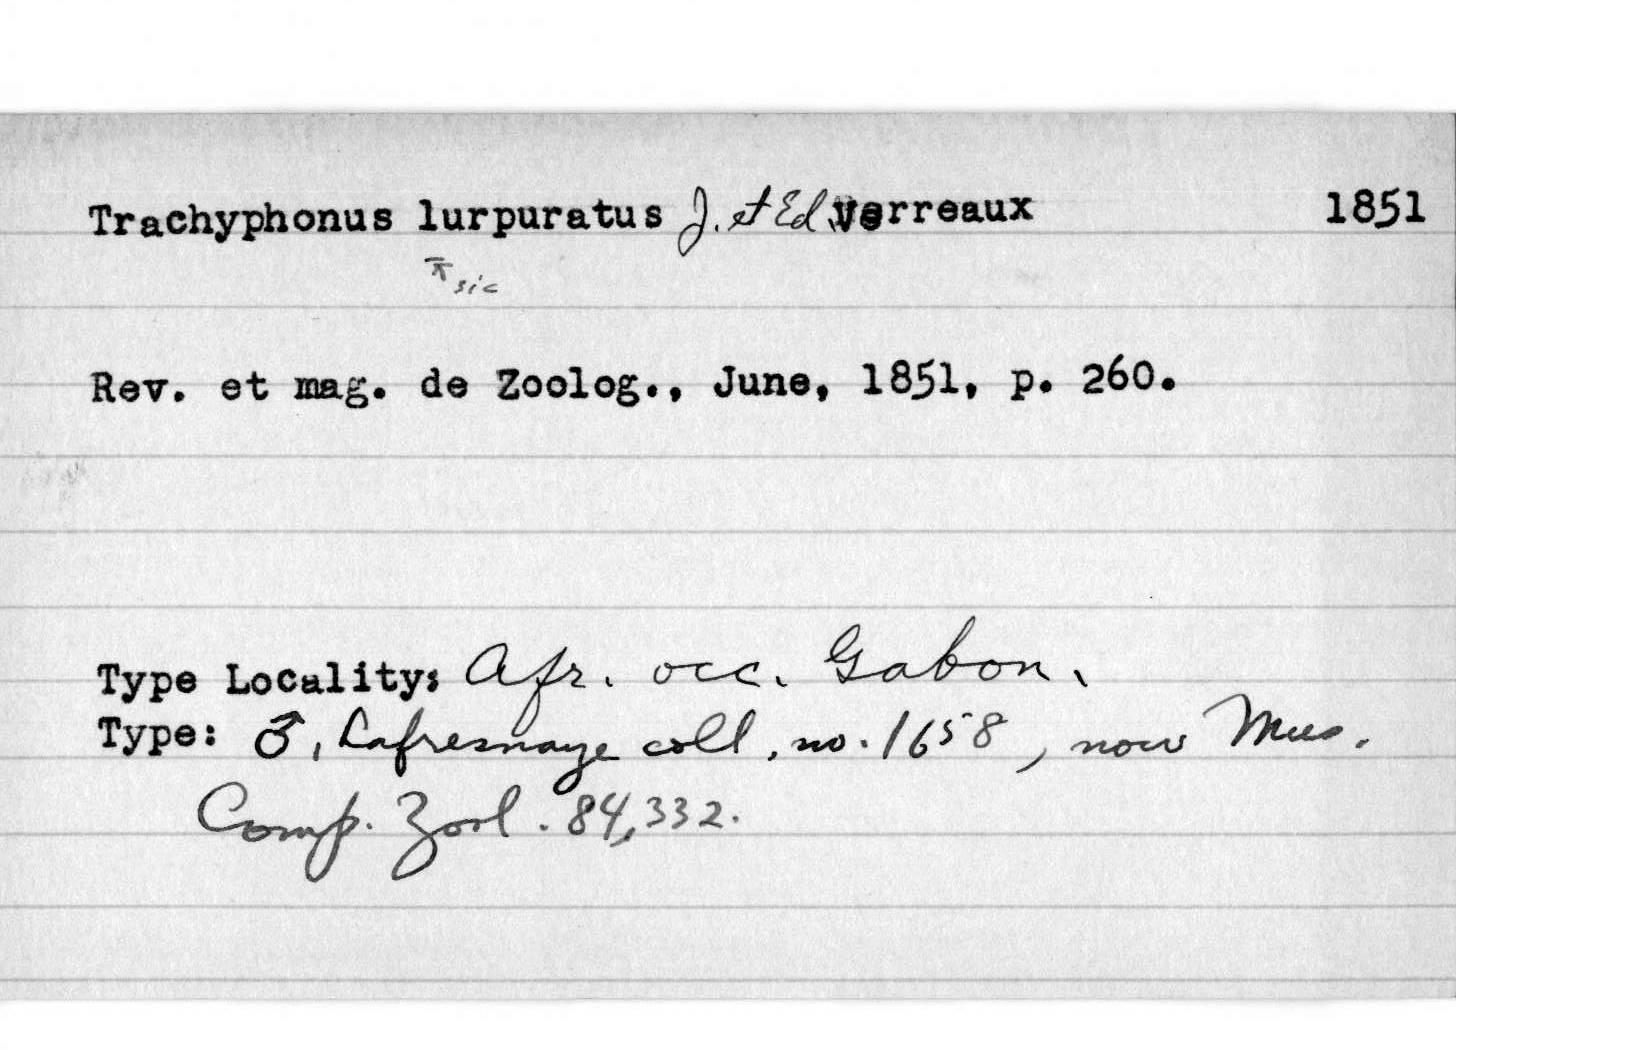 Trachyphonus lurpuratus J. et Ed. Verreaux 1851
sic
Rev. et mag. de Zoolog., June, 1851, p. 260.
Type Locality: Afr. occ. Gabon.
Type: ♂, Lafresnaye coll., no. 1658, now Mus.
Comp. Zool. 84,332.